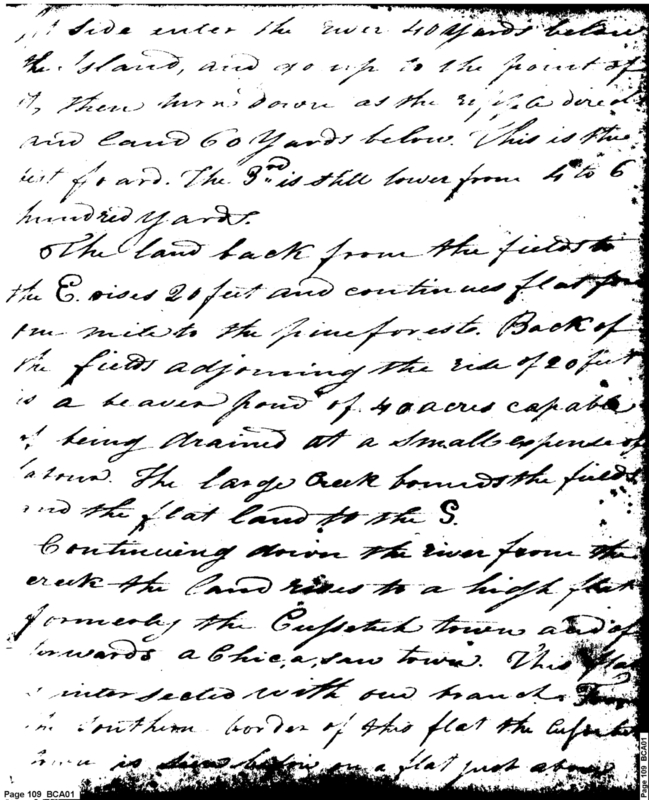 side enter the river 40 Yards below
the Island, and go up to the point of
it, then turn down as the ripple direct
and land 60 Yards below. This is the
best foard. The 3rd is still lower from 4 to 6
hundred Yards.
The land back from the fields to
the E. rises 20 feet and continues flat for
one mile to the pine forests. Back of
the fields adjoining the rise of 20 feet
is a beaver pond of 40 acres capable
of being drained at a small expense of
labour. The large Creek bounds the fields
and the flat land to the S.
Continuing down the river from the
creek the land rises to a high flat
formerly the Cussetuh town and af
terwards a Chic,a,saw town. This flat
is intersected with one branch. From
the Southern border of this flat the Cussetuh
town is seen below on a flat just above
Page 109 BCA01
Page 109 BCA01